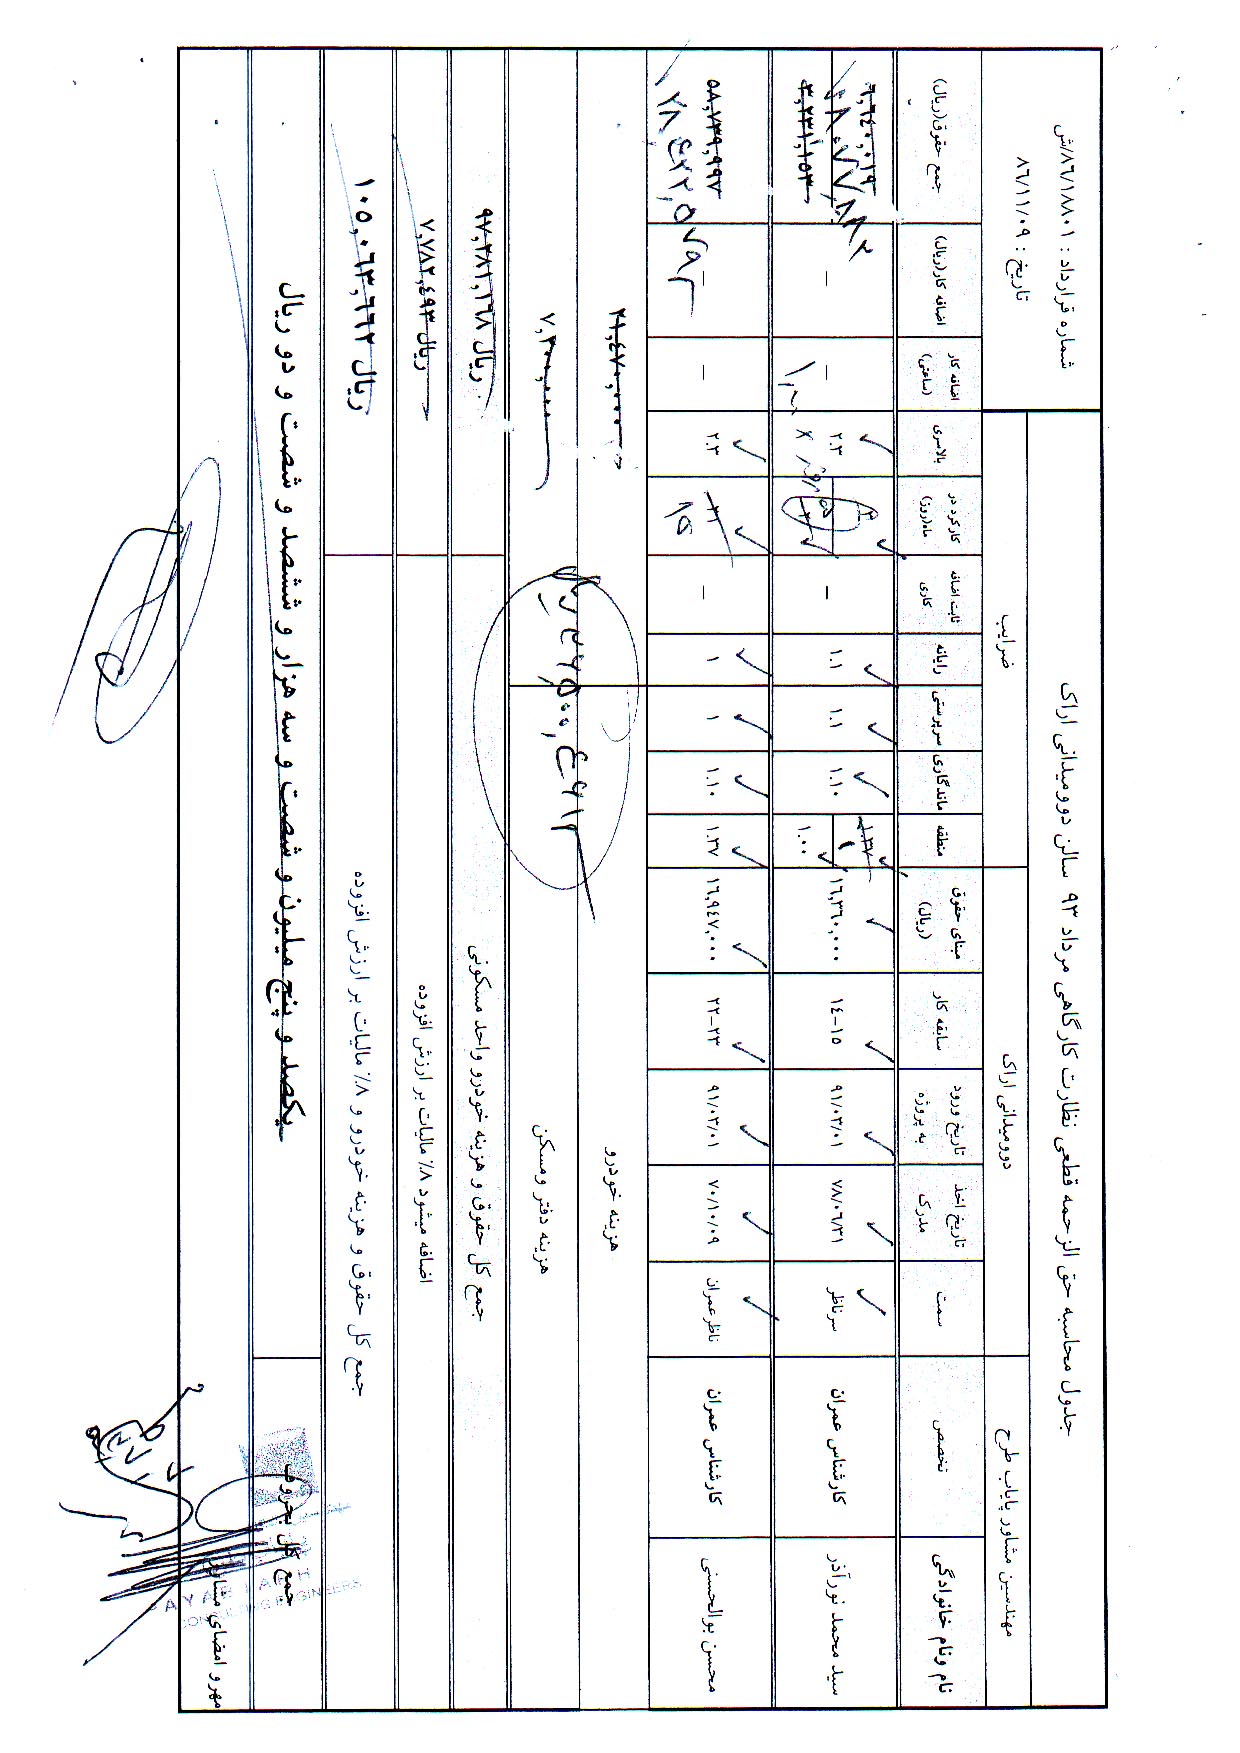 جدول محاسبه حق الزحمه قطعی نظارت کارگاهی مرداد ۹۳ سالن دوومیدانی اراک
شماره قرارداد : ۸۶/۱۸۸۰۱/ش
تاریخ : ۸۶/۱۱/۰۹
مهندسین مشاور پایاب طرح
دوومیدانی اراک
ضرایب
نام ونام خانوادگی
تخصص
سمت
تاریخ اخذ مدرک
تاریخ ورود به پروژه
سابقه کار
مبنای حقوق (ریال)
منطقه
ماندگاری
سرپرستی
رایانه
ثابت اضافه کاری
کارکرد در ماه(روز)
بالاسری
اضافه کار (ساعتی)
اضافه کار(ریال)
جمع حقوق(ریال)
سید محمد نورآذر
کارشناس عمران
سرناظر
۷۸/۰۶/۳۱
۹۱/۰۳/۰۱
۱۴-۱۵
۱۶,۳۶۰,۰۰۰
۱.۳۷
۱.۰۰
۱.۱۰
۱.۱
۱.۱
–
۲.۳
–
–
۶,۶۴۰,۰۱۹
۳,۲۳۱,۱۵۳
محسن بوالحسنی
کارشناس عمران
ناظرعمران
۷۰/۱۰/۰۹
۹۱/۰۳/۰۱
۲۲-۲۳
۱۶,۹۴۷,۰۰۰
۱.۳۷
۱.۱۰
۱
۱
–
۳۱
۱۵
۲.۳
–
–
۵۸,۷۳۹,۹۹۷
هزینه خودرو
۲۱,۴۷۰,۰۰۰
هزینه دفتر ومسکن
۷,۳۰۰,۰۰۰
جمع کل حقوق و هزینه خودرو واحد مسکونی
۹۷,۲۸۱,۱۶۸ ریال
اضافه میشود ۸٪ مالیات بر ارزش افزوده
۷,۷۸۲,۴۹۳ ریال
جمع کل حقوق و هزینه خودرو و ۸٪ مالیات بر ارزش افزوده
۱۰۵,۰۶۳,۶۶۲ ریال
جمع کل بحروف
یکصد و پنج میلیون و شصت و سه هزار و ششصد و شصت و دو ریال
مهر و امضای مشاور